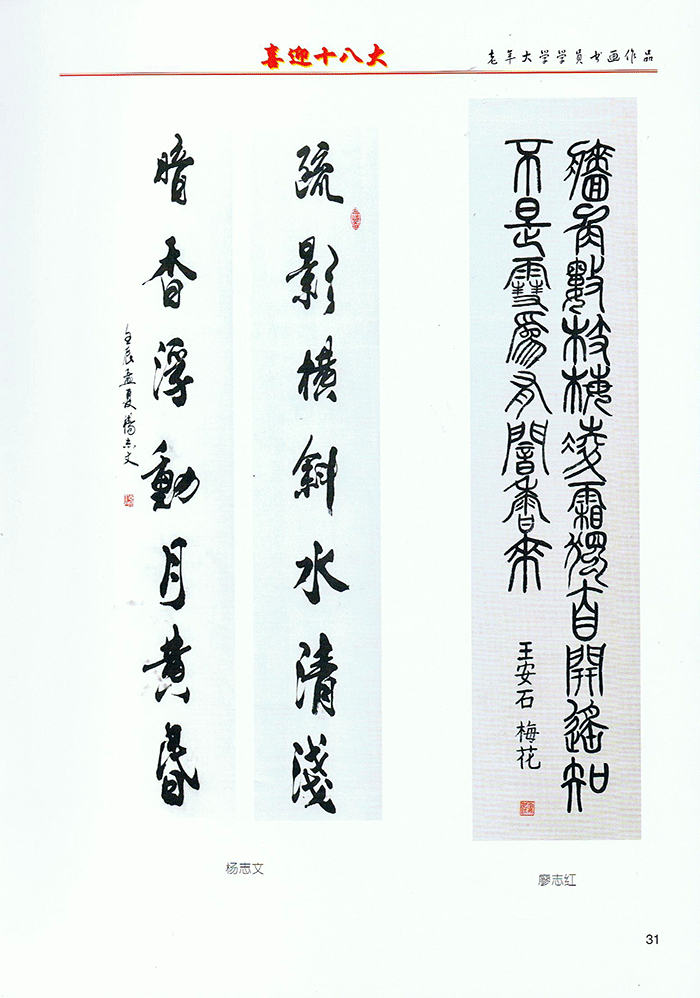 喜迎十八大
老年大学学员书画作品
牆角數枝梅凌霜獨自開遙知
不是雪爲有闇香來
王安石 梅花
疏影横斜水清淺
暗香浮動月黄昏
壬辰孟夏楊志文
杨志文
廖志红
31